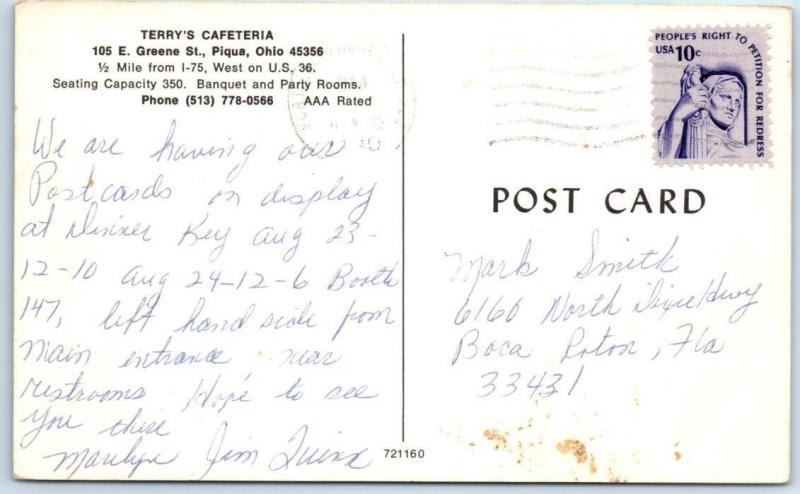 TERRY'S CAFETERIA
105 E. Greene St., Piqua, Ohio 45356
½ Mile from I-75, West on U.S. 36.
Seating Capacity 350. Banquet and Party Rooms.
Phone (513) 778-0566 AAA Rated
We are having our
Postcards on display
at Dinner Key Aug 23-
12-10 Aug 24-12-6 Booth
147, left hand side from
Main entrance, near
restrooms Hope to see
You there
Marilyn Jim Quinn
PEOPLE'S RIGHT TO PETITION FOR REDRESS
USA 10c
POST CARD
Mark Smith
6160 North Dixie Hwy
Boca Raton, Fla
33431
721160